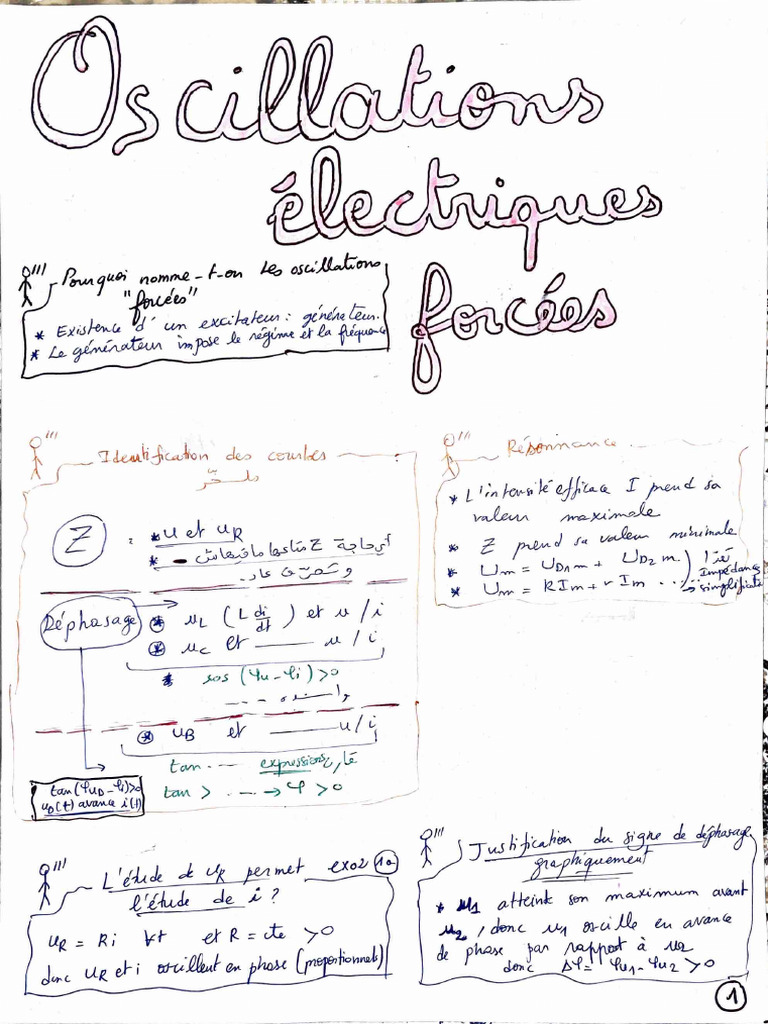 Oscillations
électriques
forcées
Pourquoi nomme-t-on les oscillations
"forcées"
* Existence d'un excitateur : générateur.
* Le générateur impose le régime et la fréquence
Identification des courbes
Z : * u et uR
* أي حاجة Z متاعها مافيهاش
Déphasage
* uL (L di/dt) et u / i
* uC et —— u / i
* cos (φu - φi) > 0
* uB et —— u / i
tan .... expressions
tan > .... → φ > 0
tan(φuD - φi)>0
uD(t) avance i(t)
Résonnance
* L'intensité efficace I prend sa
valeur maximale
* Z prend sa valeur minimale
* Um = UD1m + UD2m
* Um = RIm + rIm ...
Impédance
→ simplificate
L'étude de uR permet exo2 1a
l'étude de i ?
uR = Ri ∀t et R = cte > 0
donc uR et i oscillent en phase (proportionnels)
Justification du signe de déphasage
graphiquement
* u1 atteint son maximum avant
u2, donc u1 oscille en avance
de phase par rapport à u2
donc Δφ = φu1 - φu2 > 0
1